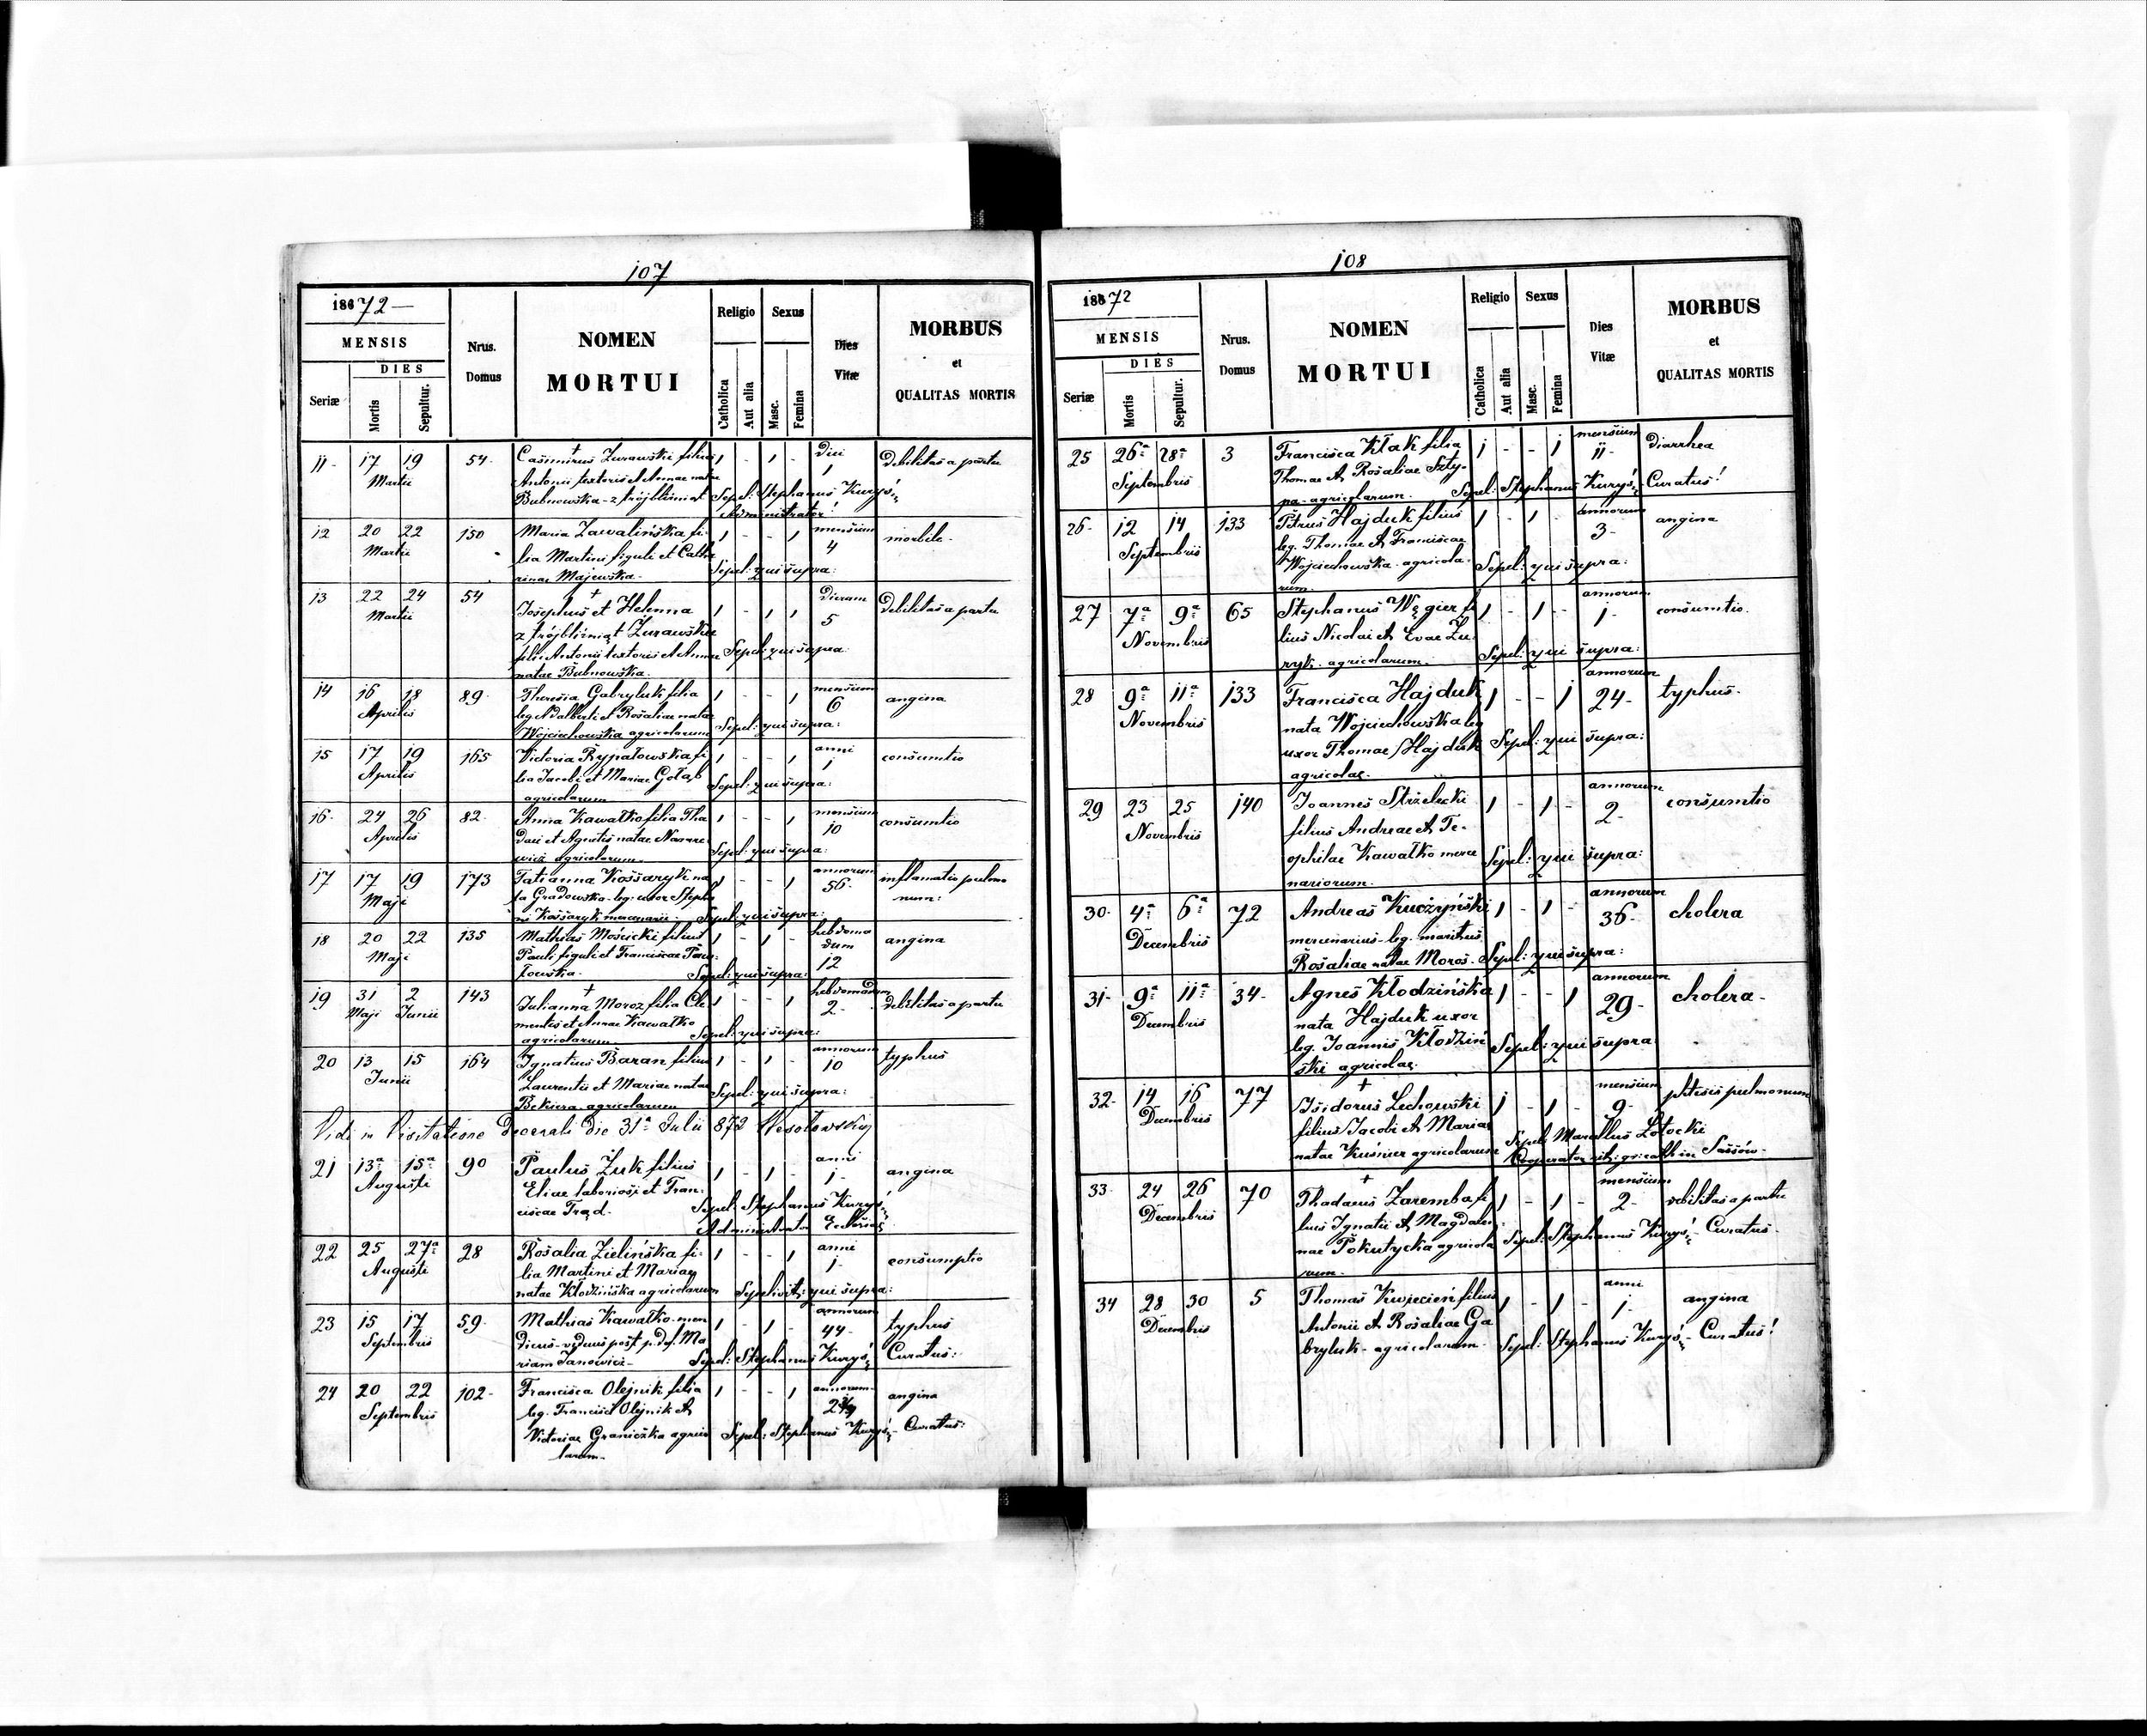 107
186 72 —
MENSIS
Seriæ
DIES
Mortis
Sepultur.
Nrus.
Domus
NOMEN
MORTUI
Religio
Catholica
Aut alia
Sexus
Masc.
Femina
Dies
Vitæ
MORBUS
et
QUALITAS MORTIS
11 - 17 19 54 - Casimirus Żurawski filius 1 - 1 - Diei 1 debilitas a partu
Martii Antonii textoris et Annae natae
Bubnowska - z trójbliźniąt Sepel: Stephanus Kuryś
Administrator
12 20 22 150 Maria Zawalińska fi- 1 - - 1 mensium 4 morbile -
Martii lia Martini figuli et Catha
rinae Majewska - Sepel: qui supra:
13 22 24 54 Josephus et Helenna 1 - 1 1 Dierum 5 debilitas a partu
Martii z trójbliźniąt Żurawskie
filii Antonii textoris et Annae Sepel: qui supra:
natae Bubnowska.
14 16 18 89 - Theresia Gabryluk filia 1 - - 1 mensium 6 angina
Aprilis leg. Adalberti et Rosaliae natae
Wojciechowska agricolarum Sepel: qui supra:
15 17 19 165 Victoria Rypałowska fi 1 - - 1 anni 1 consumtio
Aprilis lia Jacobi et Mariae Gołąb
agricolarum Sepel: qui supra:
16 - 24 26 82 - Anna Kawałko filia Tha 1 - - 1 mensium 10 consumtio
Aprilis daei et Agnetis natae
agricolarum Sepel: qui supra:
17 17 19 173 Tatianna Kossaryk na 1 - - 1 annorum 56 - inflamatio pulmo
Maji ta Gradowska leg: uxor Stepha num:
ni Kossaryk mercenarii - Sepel: qui supra:
18 20 22 135 Mathias Mościcki filius 1 - 1 - hebdoma
dum 12 angina
Maji Pauli figuli et Franciscae Paw
łowska - Sepel: qui supra:
19 31 2 143 Julianna Moroz filia Cle 1 - - 1 hebdomadum 2 - debilitas a partu
Maji Junii mentis et Annae Kawałko
agricolarum Sepel: qui supra:
20 13 15 164 Ignatius Baran filius 1 - 1 - annorum 10 typhus
Junii Laurentii et Mariae natae
Bekiera agricolarum Sepel: qui supra:
Vidi in Visitatione Decanali die 31a Julii 873 Wesołowski
21 13a 15a 90 Paulus Żuk filius 1 - 1 - anni 1 - angina
Augusti Eliae laboriosi et Fran
ciscae Trąd. Sepel: Stephanus Kuryś
Administrator Ecclesiae
22 25 27a 28 Rosalia Zielińska fi- 1 - - 1 anni 1 - consumptio
Augusti lia Martini et Mariae
natae Kłodzińska agricolarum Sepelivit: qui supra:
23 15 17 59 - Mathias Kawałko men 1 - 1 - annorum 44 - typhus
Septembris dicus - viduus post p. def. Ma
riam Janowicz - Sepel: Stephanus Kuryś Curatus:
24 20 22 102 - Francisca Olejnik filia 1 - - 1 annorum angina
Septembris leg. Francisci Olejnik et
Victoriae Graniczka agrico Sepel: Stephanus Kuryś - Curatus:
larum -
108
186 72
MENSIS
Seriæ
DIES
Mortis
Sepultur.
Nrus.
Domus
NOMEN
MORTUI
Religio
Catholica
Aut alia
Sexus
Masc.
Femina
Dies
Vitæ
MORBUS
et
QUALITAS MORTIS
25 26a 28a 3 Francisca Kłak filia 1 - - 1 mensium 11 - diarrhea
Septembris Thomae et Rosaliae Szty-
pa - agricolarum. Sepel: Stephanus Kuryś - Curatus!
26 - 12 14 133 Petrus Hajduk filius 1 - 1 - annorum 3 - angina
Septembris leg. Thomae et Franciscae
Wojciechowska - agricola- Sepel: qui supra:
rum -
27 7a 9a 65 Stephanus Węgier fi 1 - 1 - annorum 1 - consumtio.
Novembris lius Nicolai et Evae Żu-
ryk - agricolarum. Sepel: qui supra:
28 9a 11a 133 Francisca Hajduk 1 - - 1 annorum 24 - typhus -
Novembris nata Wojciechowska leg
uxor Thomae Hajduk Sepel: qui supra:
agricolae.
29 23 25 140 Joannes Strzelecki 1 - 1 - annorum 2 - consumtio
Novembris filius Andreae et Te-
ophilae Kawałko merce Sepel: qui supra:
nariorum.
30 - 4a 6a 72 Andreas Kuczyński 1 - 1 - annorum 36 - cholera
Decembris mercenarius - leg. maritus
Rosaliae natae Moros - Sepel: qui supra:
31 - 9a 11a 34 - Agnes Kłodzińska 1 - - 1 annorum 29 - cholera -
Decembris nata Hajduk uxor
leg. Joannis Kłodziń Sepel: qui supra:
ski agricolae.
32 - 14 16 77 Isidorus Lechowski 1 - 1 - mensium 9 - phtisis pulmonum
Decembris filius Jacobi et Mariae Sepel: Marcellus Łotocki
natae Kuśnier agricolarum Cooperator rit: gr: cath in Sassów -
33 - 24 26 70 Thadaeus Zaremba fi 1 - 1 - mensium 2 - debilitas a partu
Decembris lius Ignatii et Magdale
nae Pokutycka agricola Sepel: Stephanus Kuryś - Curatus -
rum -
34 28 30 5 Thomas Kwiecień filius 1 - 1 - anni 1 - angina
Decembris Antonii et Rosaliae Ga
bryluk - agricolarum - Sepel: Stephanus Kuryś - Curatus!